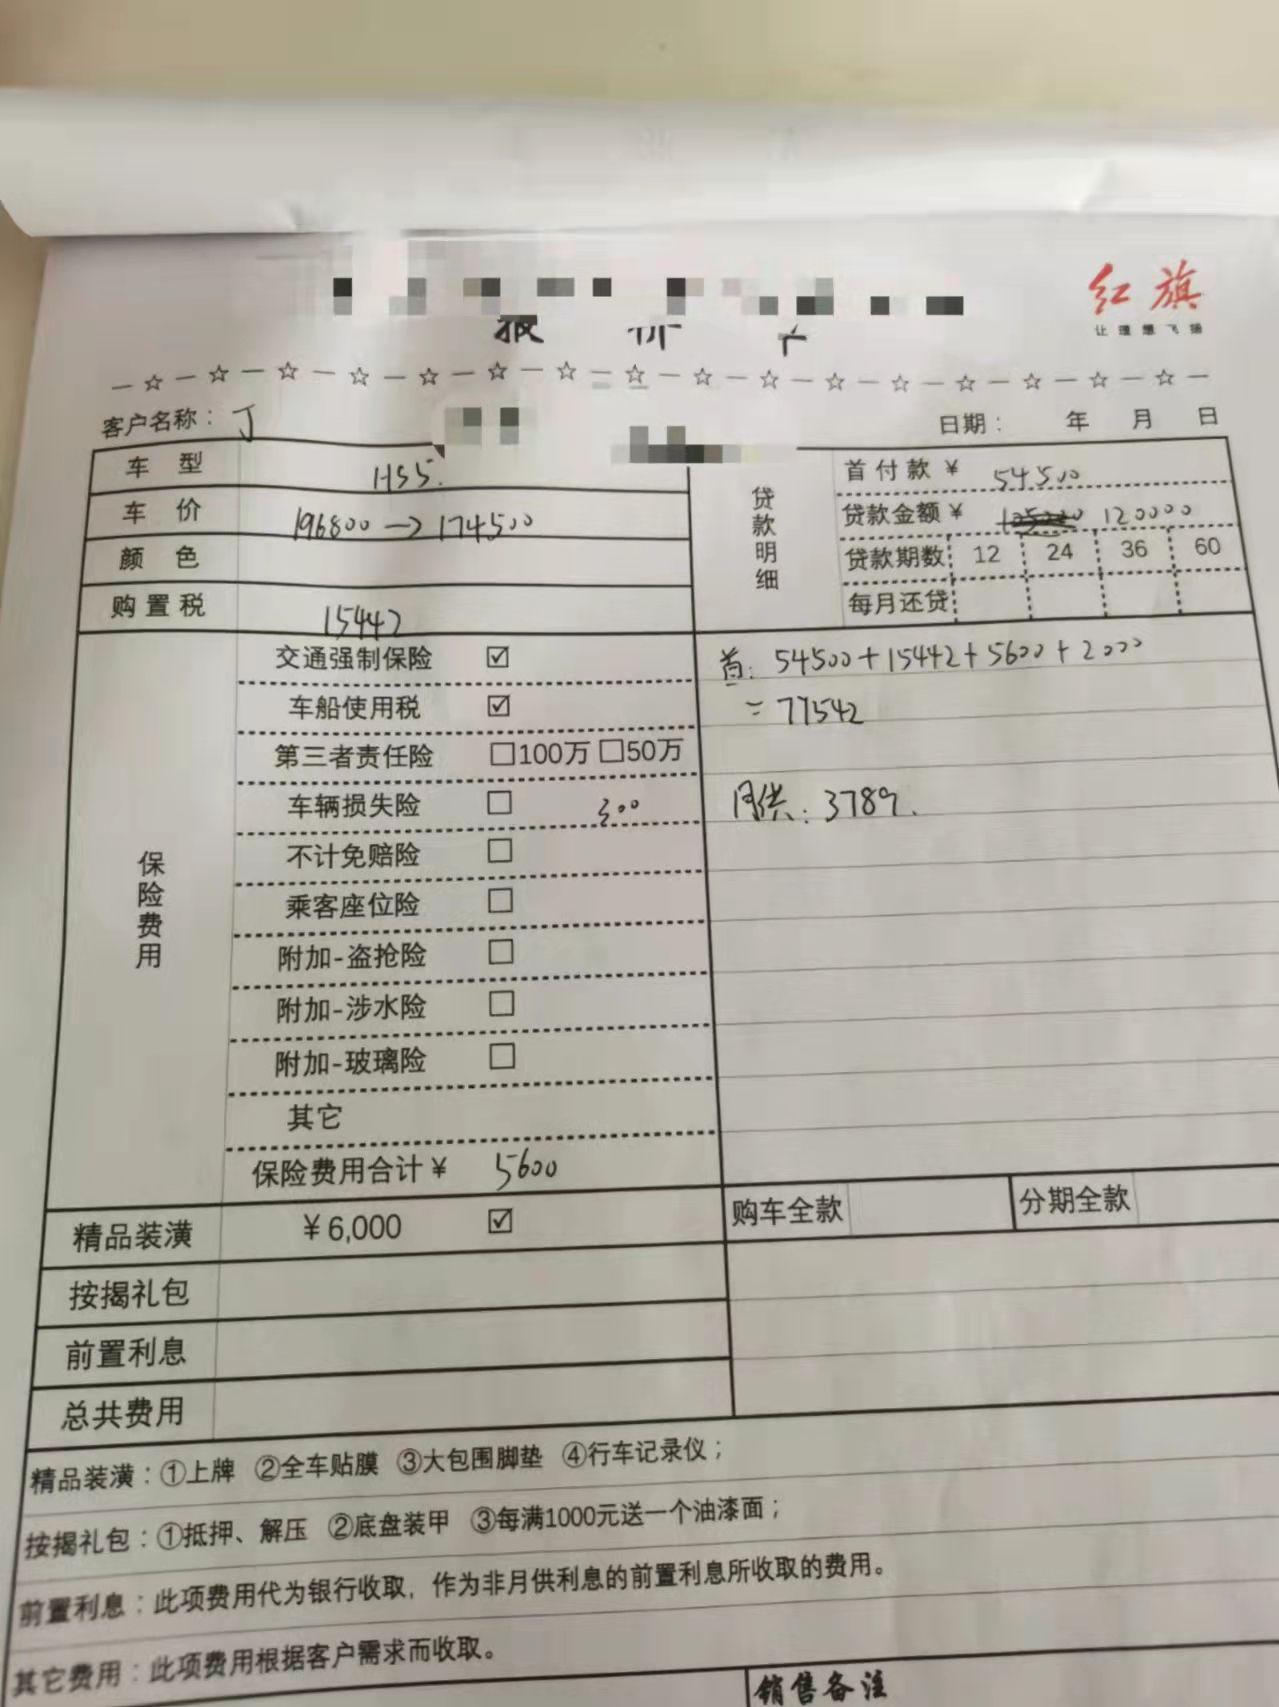 红旗
让理想飞扬
客户名称：
日期： 年 月 日
车型 HS5.
车价 196800→174500
颜色
购置税 15442
贷款明细
首付款¥ 54500
贷款金额¥ 120000
贷款期数 12 24 36 60
每月还贷
保险费用
交通强制保险 ☑
车船使用税 ☑
第三者责任险 □100万 □50万
车辆损失险 □ 300
不计免赔险 □
乘客座位险 □
附加-盗抢险 □
附加-涉水险 □
附加-玻璃险 □
其它
保险费用合计¥ 5600
首: 54500+15442+5600+2000
= 77542
月供: 3789.
精品装潢 ¥6,000 ☑
购车全款 分期全款
按揭礼包
前置利息
总共费用
精品装潢：①上牌 ②全车贴膜 ③大包围脚垫 ④行车记录仪；
按揭礼包：①抵押、解压 ②底盘装甲 ③每满1000元送一个油漆面；
前置利息：此项费用代为银行收取，作为非月供利息的前置利息所收取的费用。
其它费用：此项费用根据客户需求而收取。
销售备注